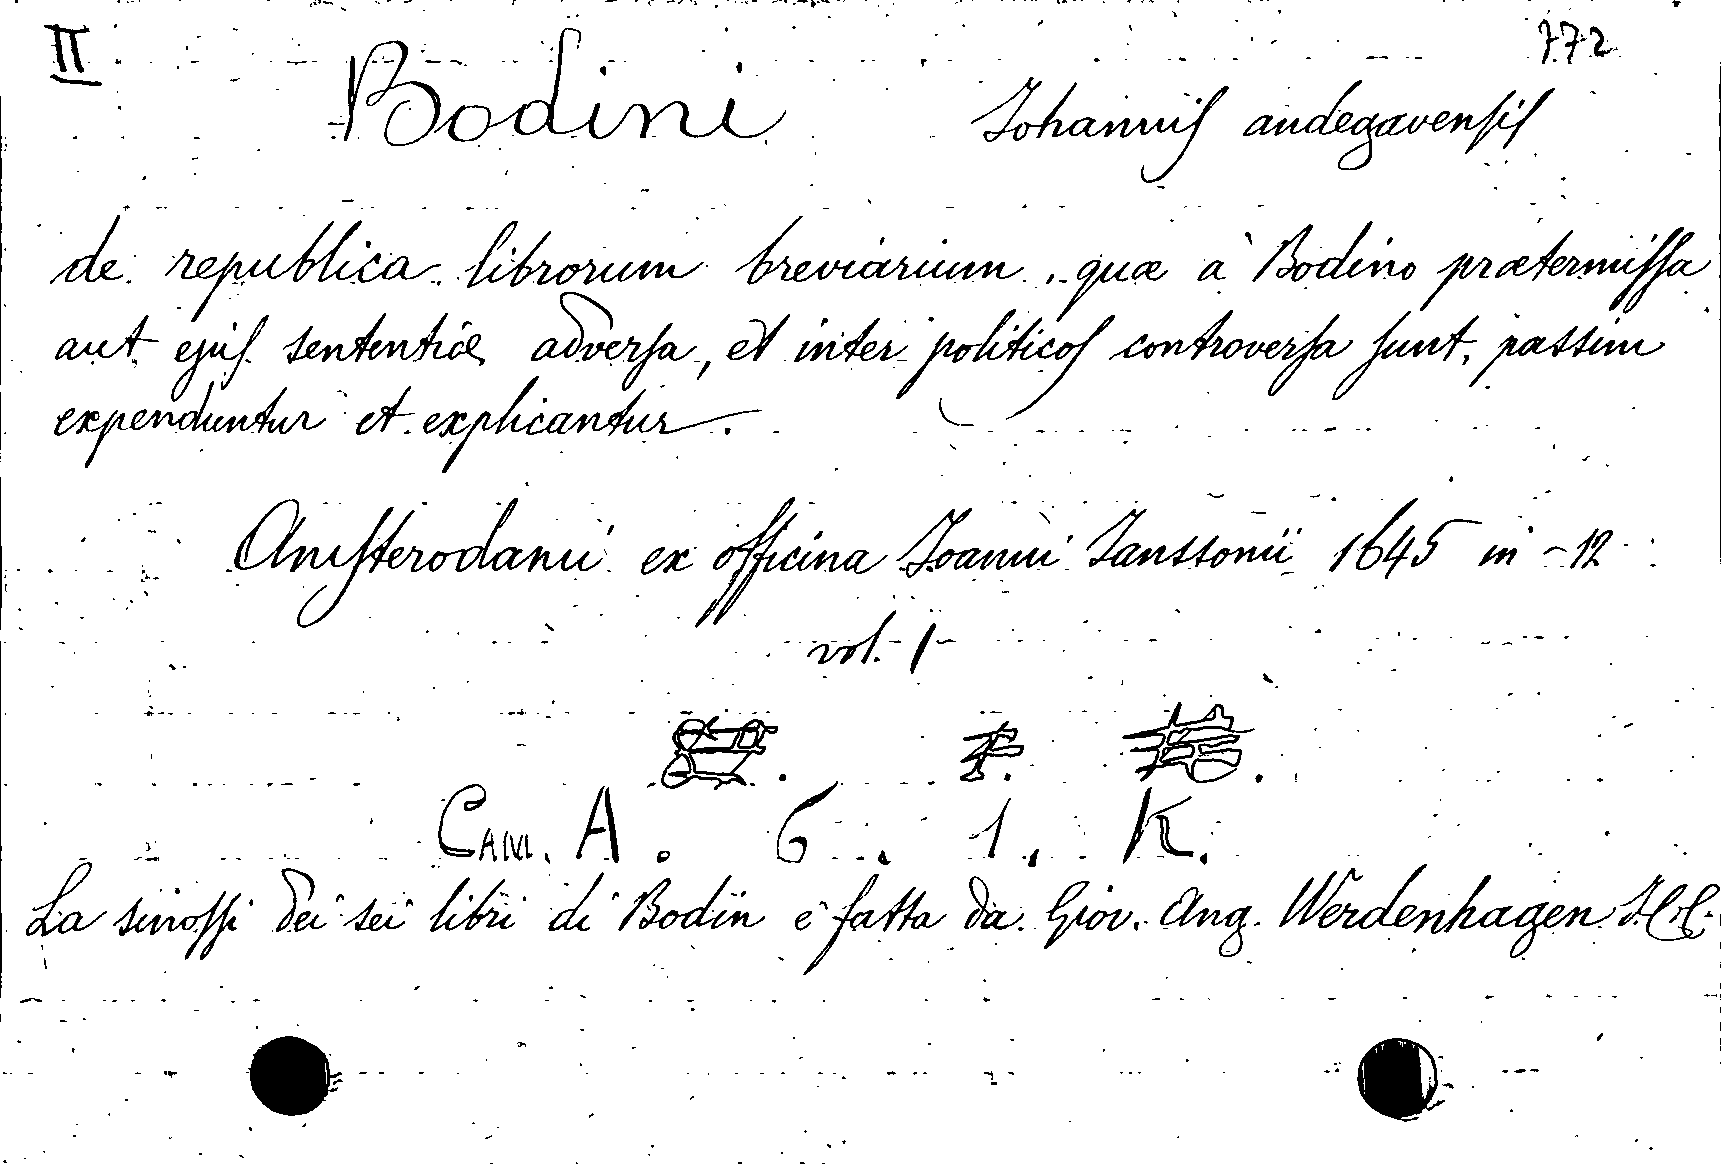 II 772
Bodini Johannis andegavensis
de republica librorum breviarium, quæ à Bodino prætermissa
aut ejus sententiæ adversa, et inter politicos controversa sunt, passim
expenduntur et explicantur.
Amsterodami ex officina Joanni Janssonii 1645 in-12
vol. 1
CAM. A. 6. 1. K.
La sinossi dei sei libri di Bodin è fatta da Giov. Ang. Werdenhagen